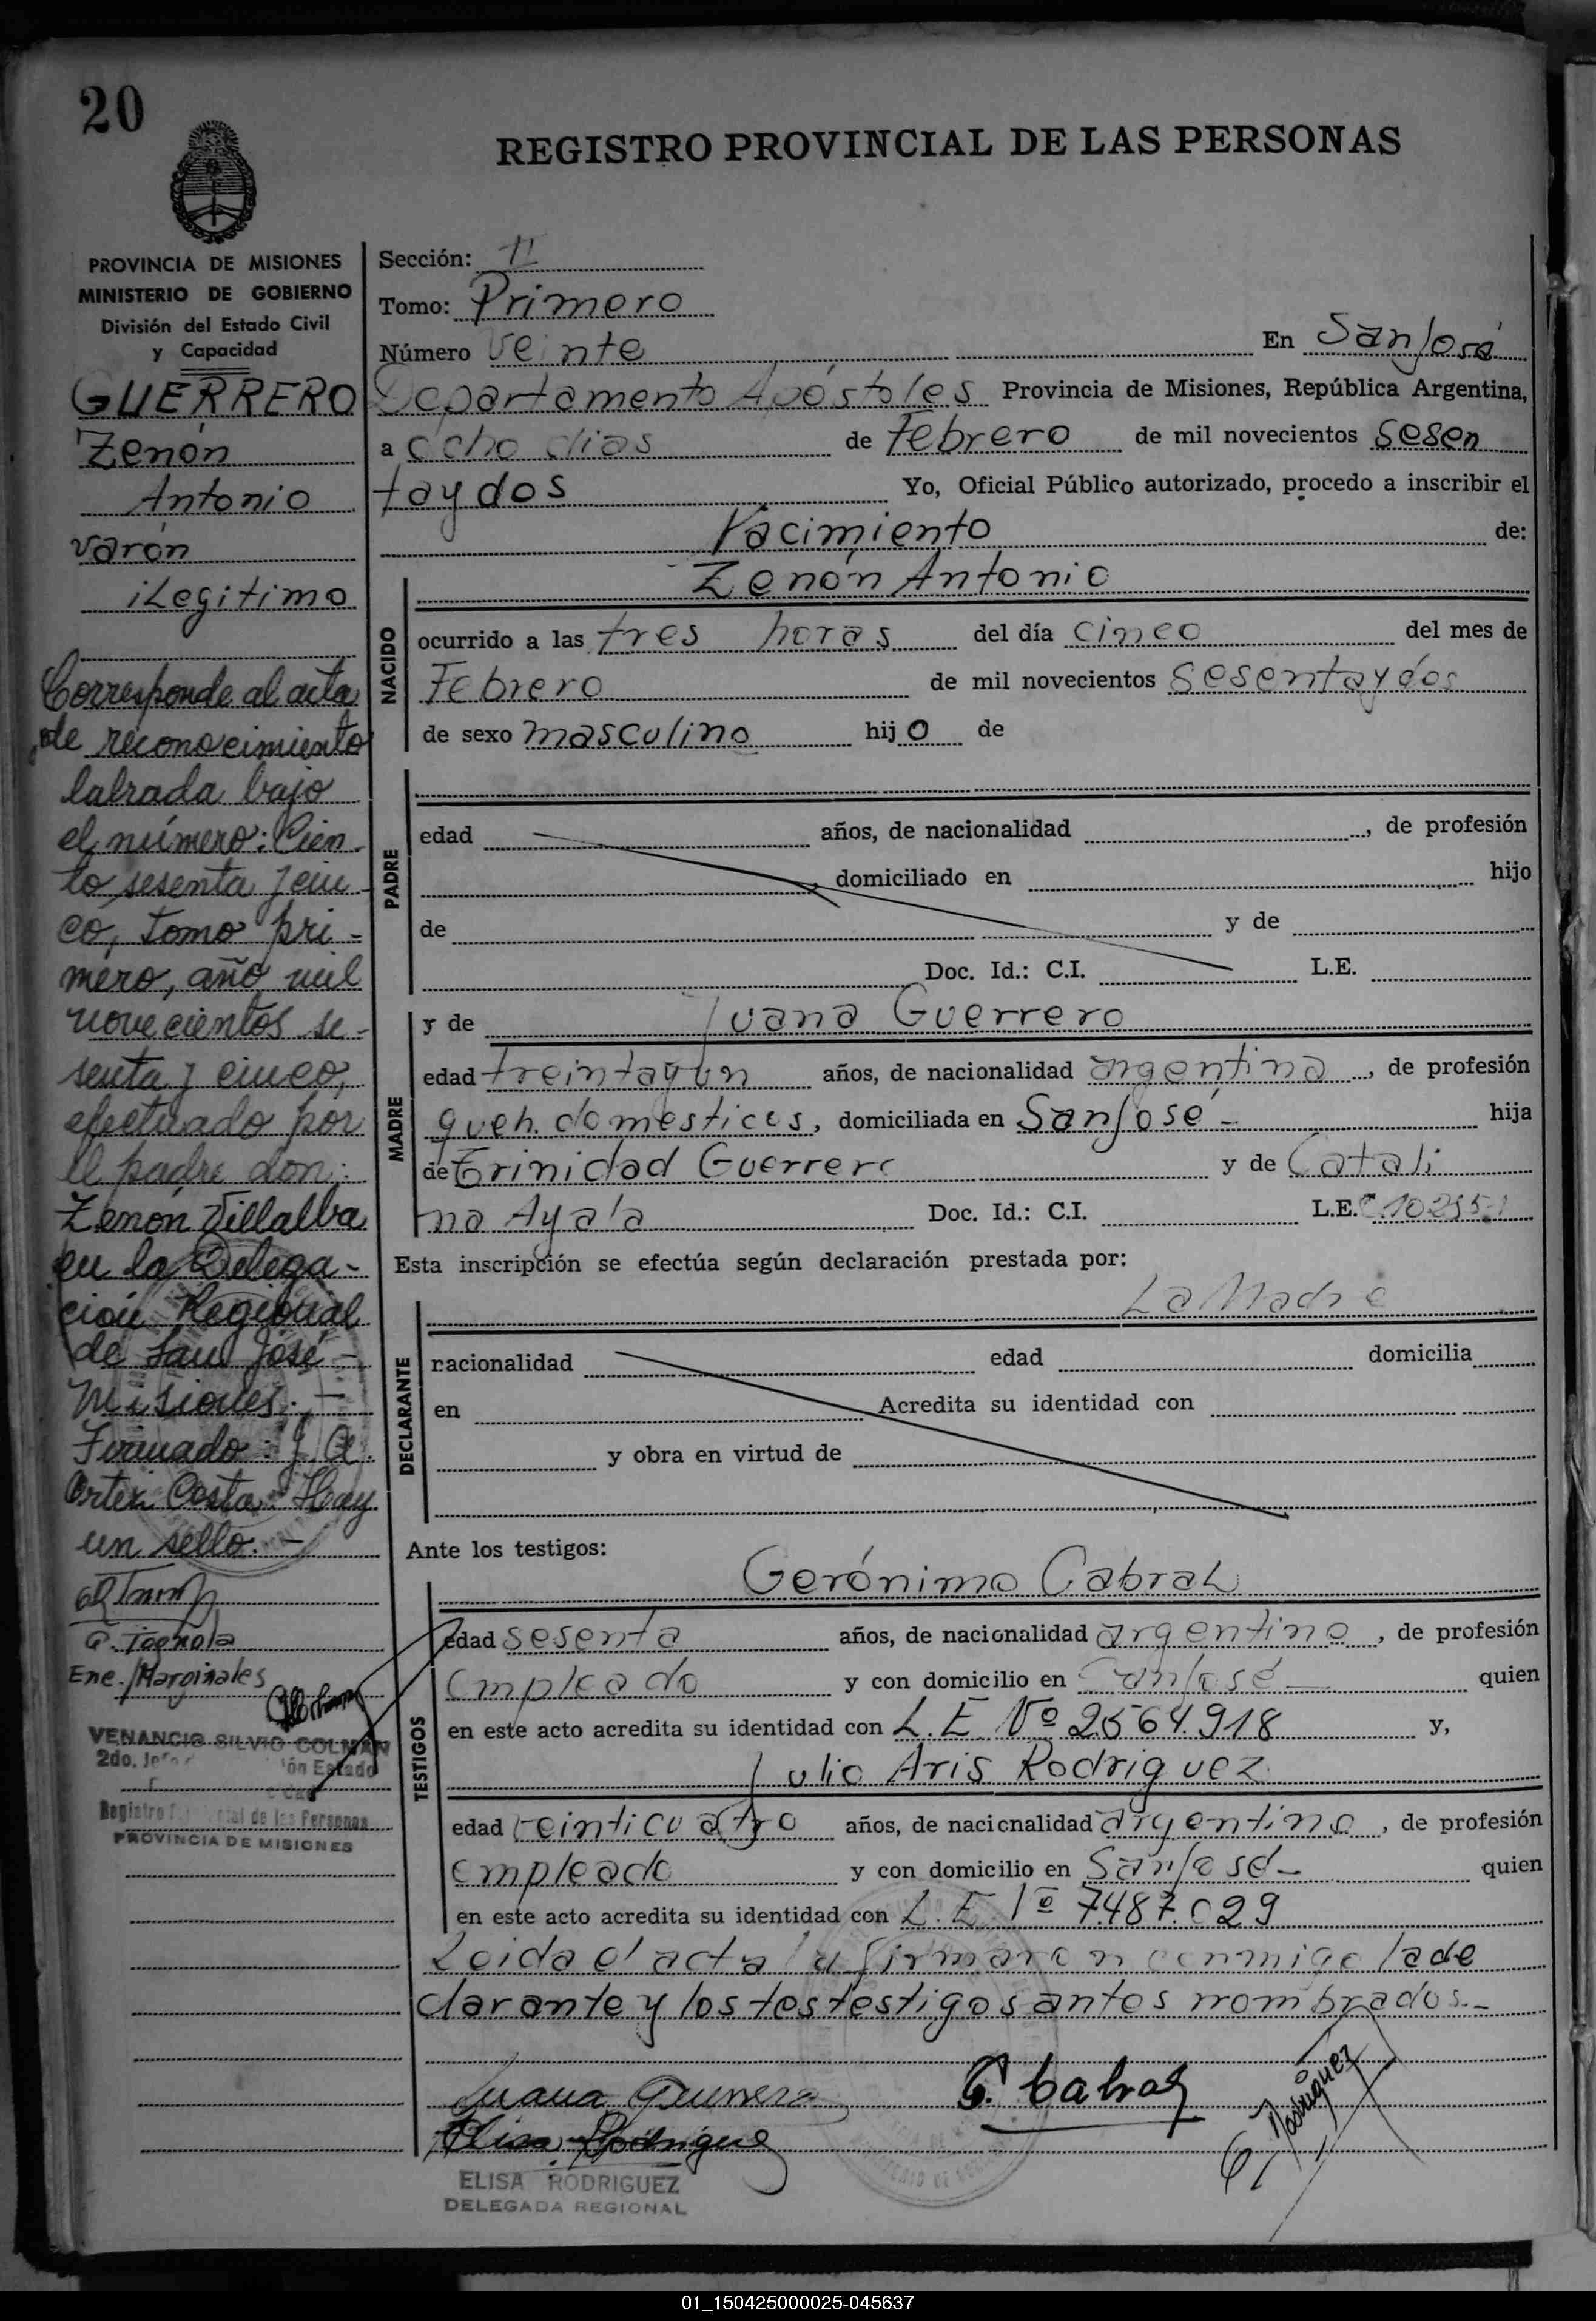 20
REGISTRO PROVINCIAL DE LAS PERSONAS
PROVINCIA DE MISIONES
MINISTERIO DE GOBIERNO
División del Estado Civil
y Capacidad
GUERRERO
Zenón
Antonio
varón
iLegitimo
Corresponde al acta
de reconocimiento
labrada bajo
el número: Cien
to sesenta y cin
co, tomo pri-
mero, año mil
novecientos se-
senta y cinco,
efectuado por
el padre don:
Zenón Villalba
en la Delega-
ción Regional
de San José -
Misiones.-
Firmado: J. A.
Ortiz Costa. Hay
un sello.-
Ene./Marginales
VENANCIO SILVIO COLMAN
2do. Jefe ión Estado
Registro de las Personas
PROVINCIA DE MISIONES
Sección: 1ª
Tomo: Primero
Número veinte En San José
Departamento Apóstoles Provincia de Misiones, República Argentina,
a ocho dias de Febrero de mil novecientos sesen
taydos Yo, Oficial Público autorizado, procedo a inscribir el
Nacimiento de:
Zenón Antonio
NACIDO
ocurrido a las tres horas del día cinco del mes de
Febrero de mil novecientos sesentaydos
de sexo masculino hijo de
PADRE
edad años, de nacionalidad , de profesión
domiciliado en hijo
de y de
Doc. Id.: C.I. L.E.
MADRE
y de Juana Guerrero
edad treintayun años, de nacionalidad argentina, de profesión
queh. domesticos, domiciliada en San José - hija
de Trinidad Guerrero y de Catali
na Ayala Doc. Id.: C.I. L.E.
Esta inscripción se efectúa según declaración prestada por:
La Madre
DECLARANTE
nacionalidad edad domicilia
en Acredita su identidad con
y obra en virtud de
Ante los testigos:
Gerónimo Cabral
TESTIGOS
edad sesenta años, de nacionalidad argentino, de profesión
empleado y con domicilio en San José - quien
en este acto acredita su identidad con L.E. Nº 2.564.918 y,
Julio Aris Rodriguez
edad veinticuatro años, de nacionalidad argentino, de profesión
empleado y con domicilio en San José - quien
en este acto acredita su identidad con L.E. Nº 7.487.029
Leida el acta la firmaron conmigo la de
clarante y los tes testigos antes nombrados.-
Juana Guerrero
G. Cabral
Rodriguez
Elisa Rodriguez
ELISA RODRIGUEZ
DELEGADA REGIONAL
01_150425000025-045637